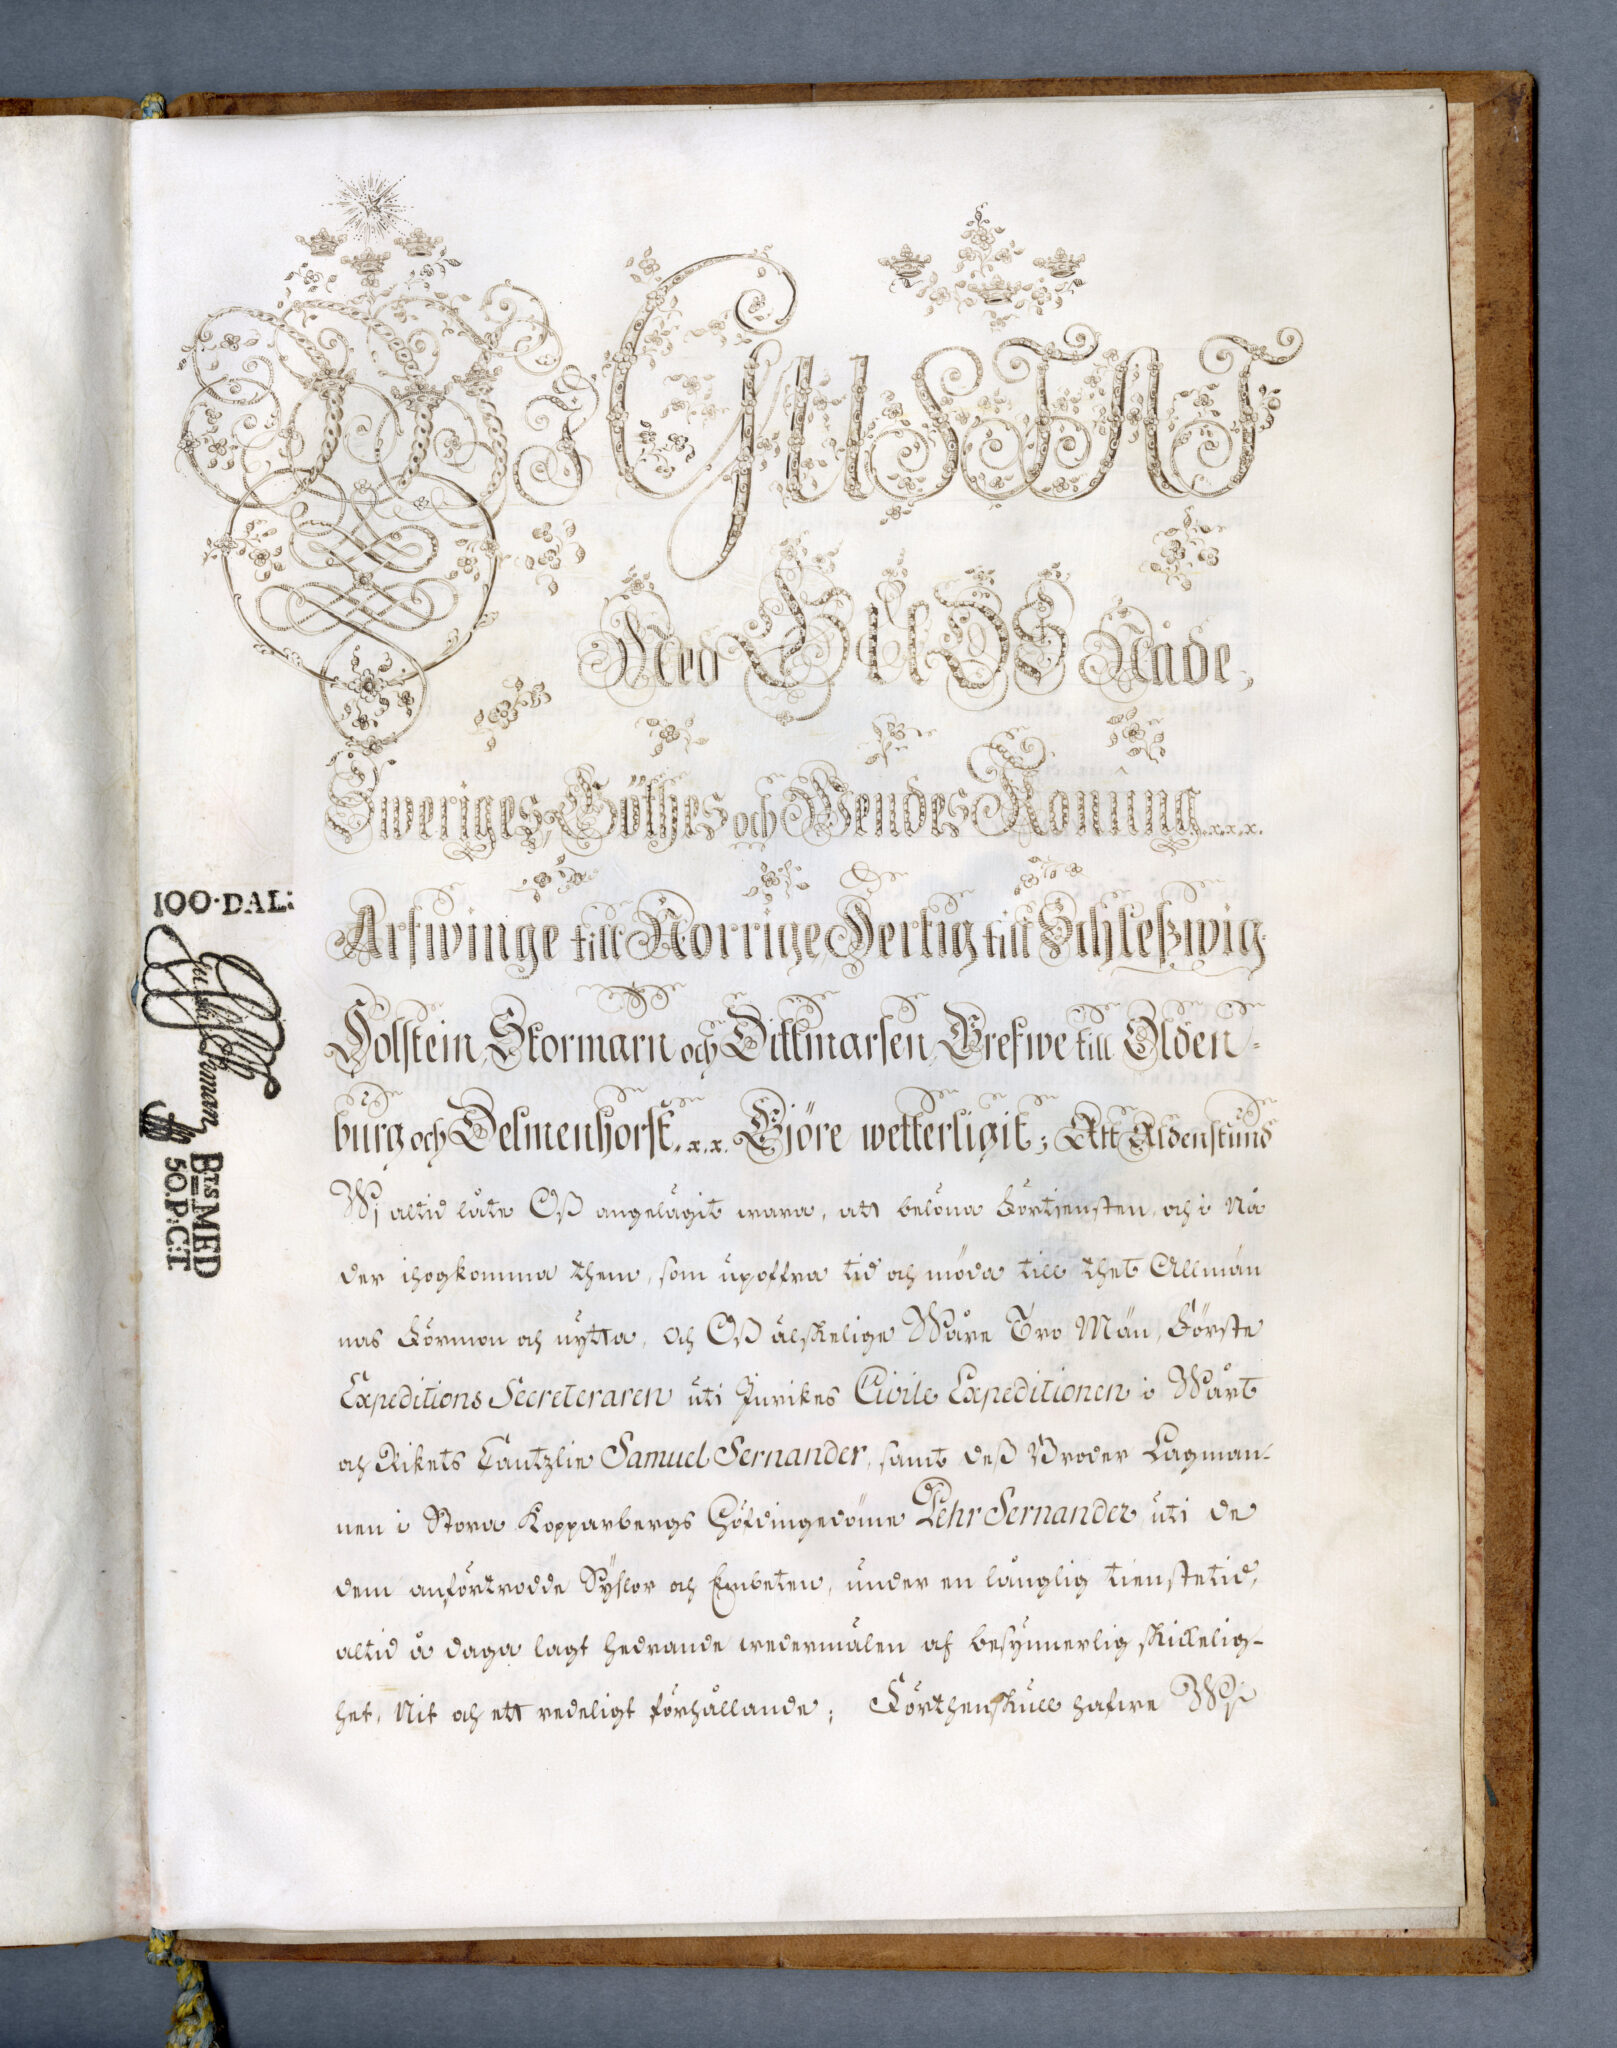 Wi GUSTAF
Med GUDS Nåde,
Sweriges, Göthes och Wendes Konung .x.x.x.
Arfwinge till Norrige, Hertig till Schleßwig
Holstein, Stormarn och Dittmarsen, Grefwe till Olden-
burg och Delmenhorst .x.x. Giöre wetterligit; Att Aldenstund
Wj altid låte Oß angelägit wara, att belöna Förtiensten, och i Nå
der ihogkomma them, som upoffra tid och möda till thet Allmän
nas Förmon och nytta, Och Oß älskelige Wåre Tro Män, Förste
Expeditions Secreteraren uti Inrikes Civile Expeditionen i Wårt
och Rikets Cantzlie Samuel Sernander, samt deß Broder Lagman-
nen i Stora Kopparbergs Höfdingedöme Pehr Sernander, uti de
dem anförtrodde Syslor och Embeten, under en långlig tienstetid,
altid å daga lagt hedrande wedermälen af besynnerlig skickelig-
het, Nit och ett redeligt förhållande; Förthenskull hafwe Wj
100·DAL:
BTS MED
50.P:C:T